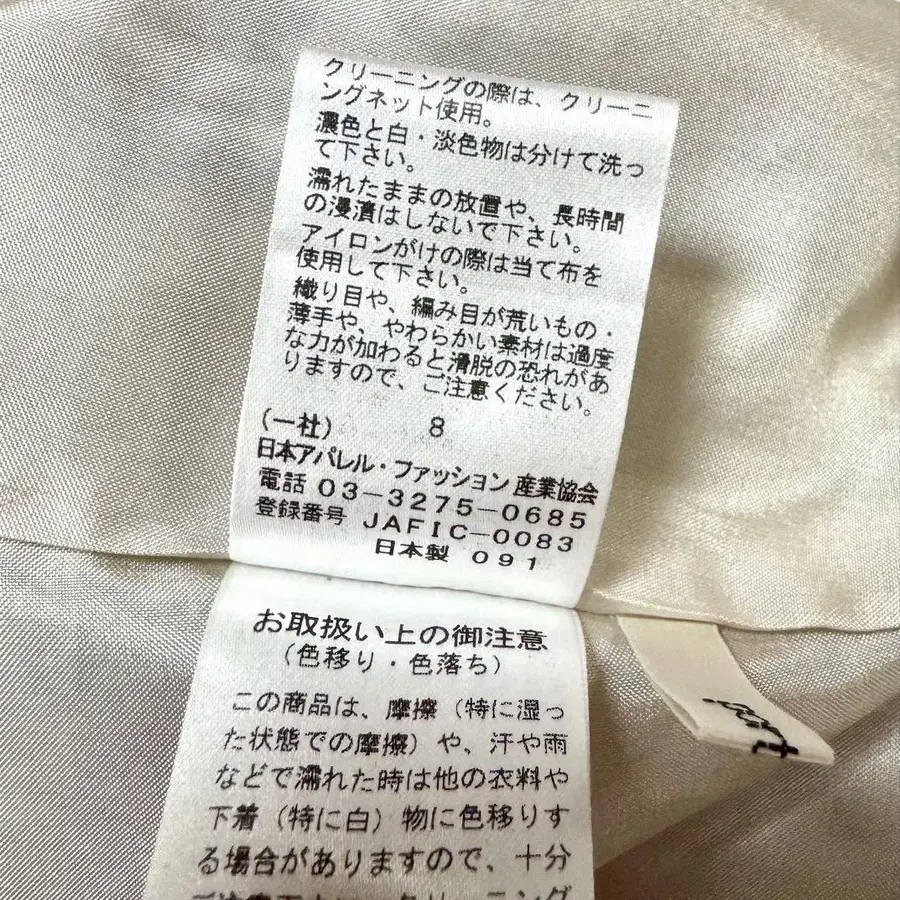 クリーニングの際は、クリーニ
ングネット使用。
濃色と白・淡色物は分けて洗っ
て下さい。
濡れたままの放置や、長時間
の浸漬はしないで下さい。
アイロンがけの際は当て布を
使用して下さい。
織り目や、編み目が荒いもの・
薄手や、やわらかい素材は過度
な力が加わると滑脱の恐れがあ
りますので、ご注意ください。
(一社) 8
日本アパレル・ファッション産業協会
電話 03-3275-0685
登録番号 JAFIC-0083
日本製 091
お取扱い上の御注意
(色移り・色落ち)
この商品は、摩擦(特に湿っ
た状態での摩擦)や、汗や雨
などで濡れた時は他の衣料や
下着(特に白)物に色移りす
る場合がありますので、十分